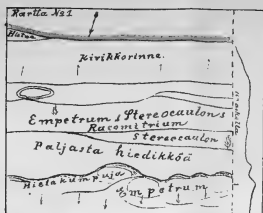 Kartta № 1
Hietaa
Kivikkorinne.
Empetrum & Stereocaulon &
Racomitrium
Stereocaulon
Paljasta hiedikköä
Hietakumpuja
Empetrum